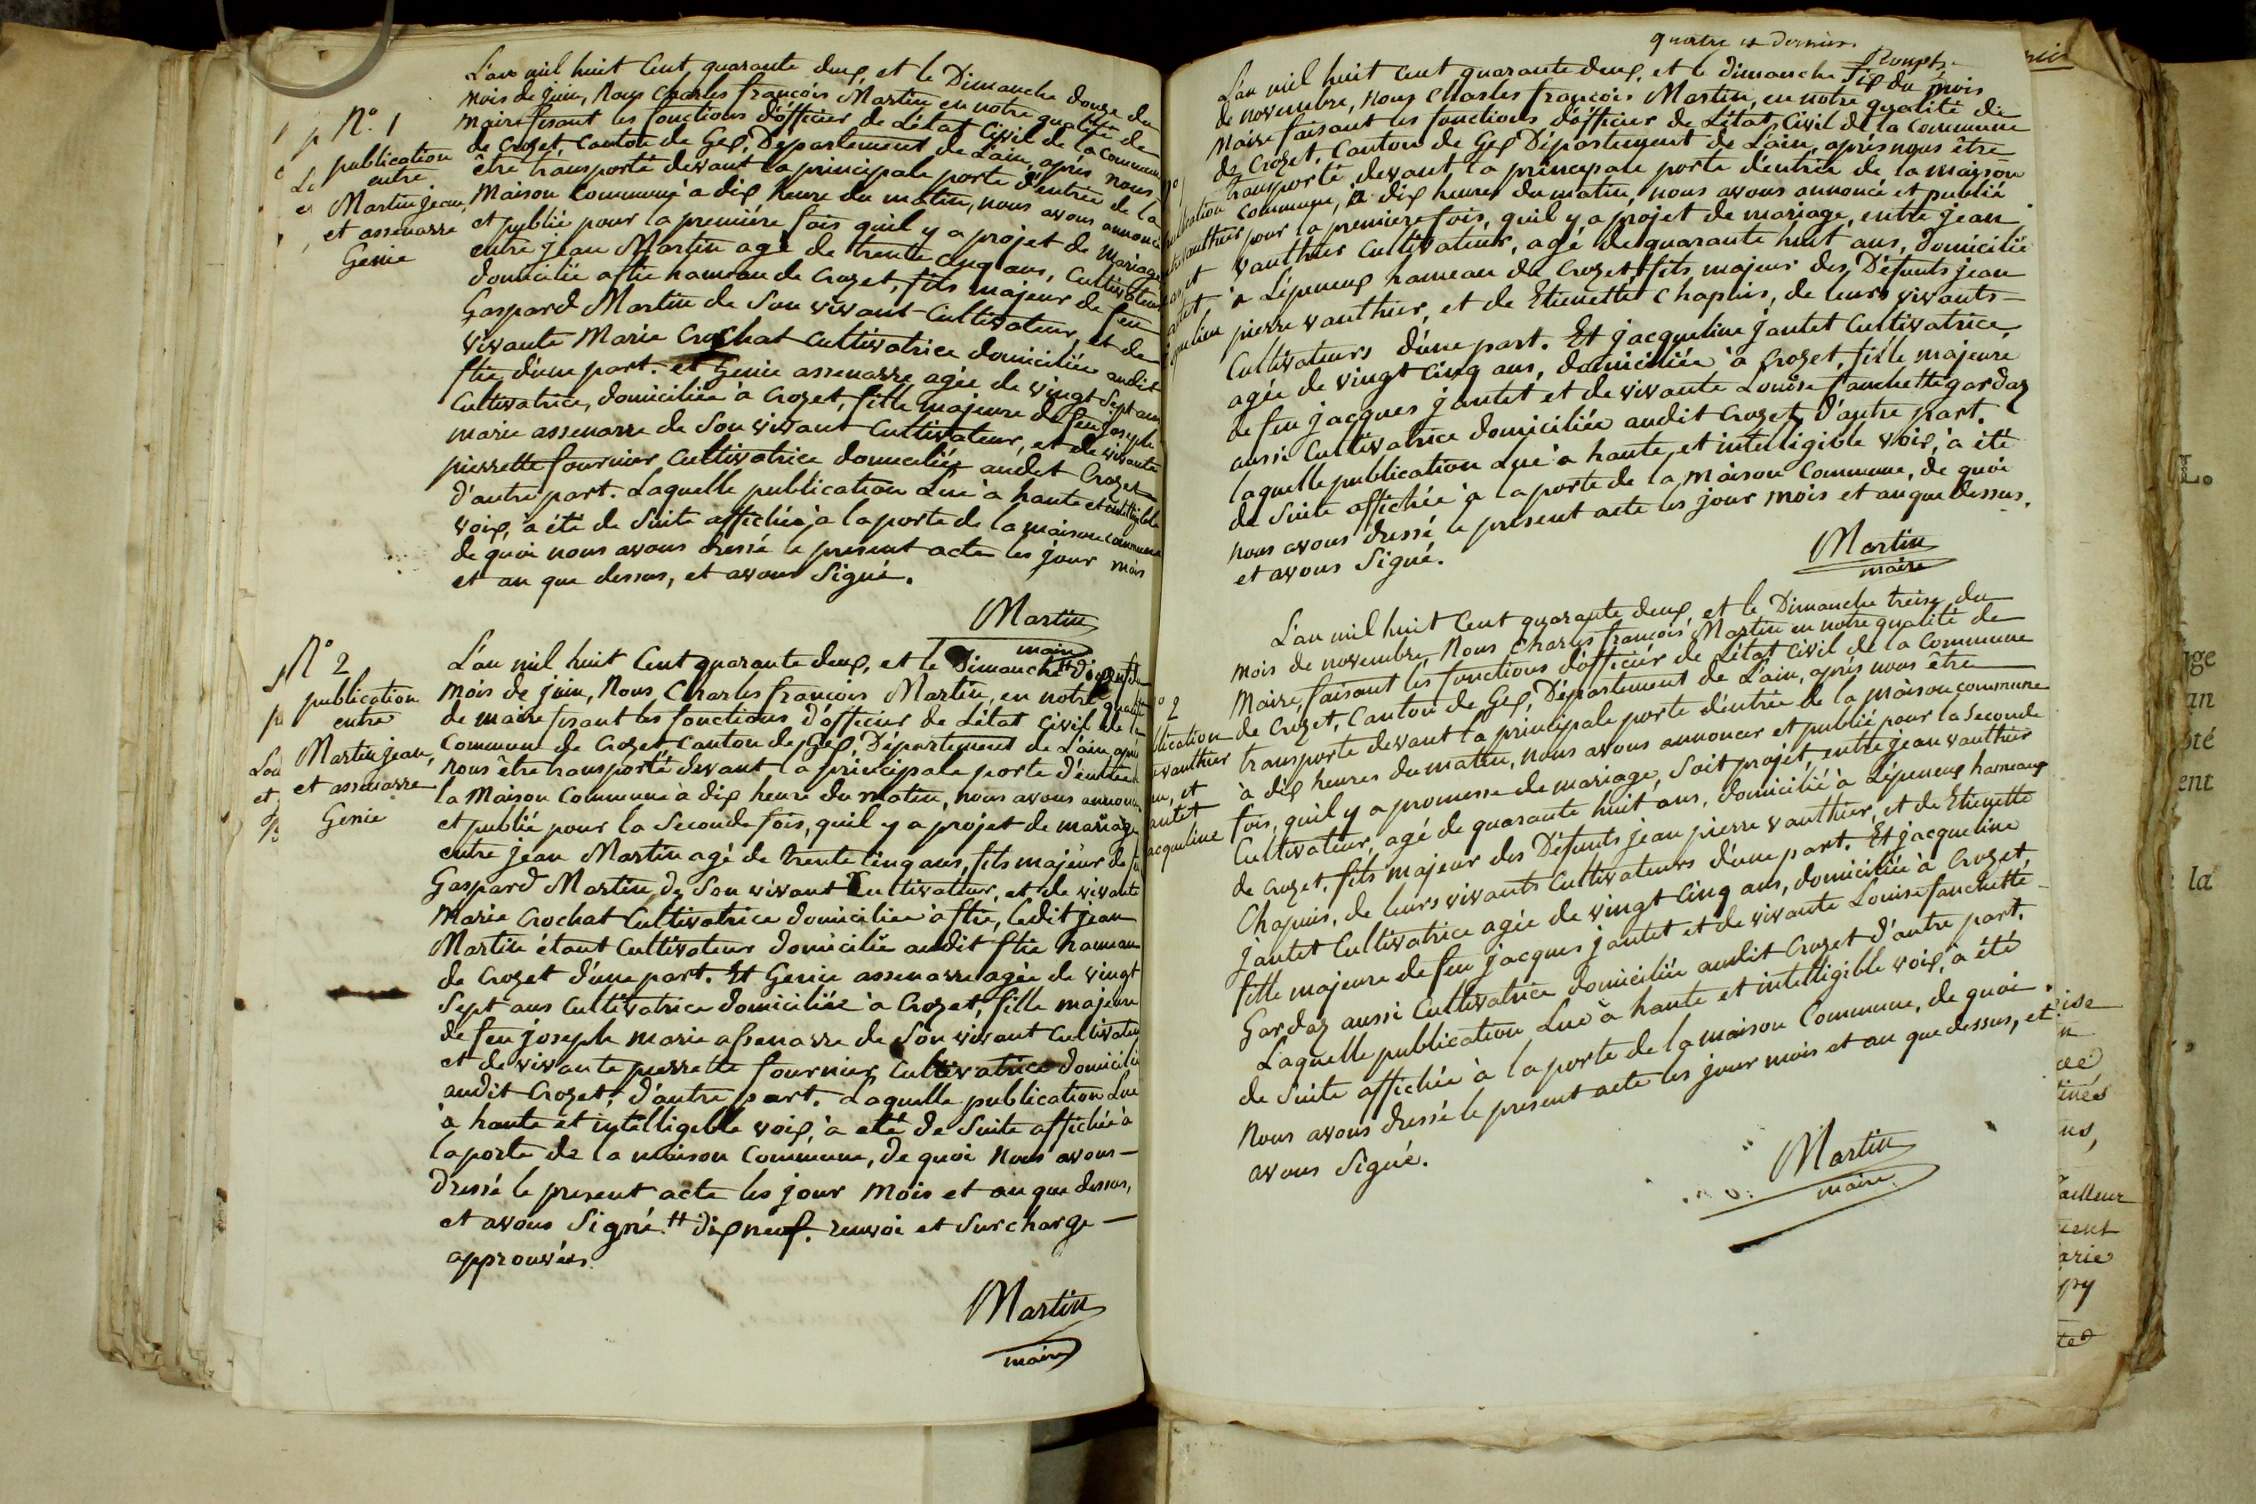 N.° 1
publication
entre
Martin jean,
et assenarre
Génie
L'an mil huit Cent quarante deux, et le Dimanche douze du
mois de juin, Nous Charles françois Martin en notre qualité de
maire fisant les fonctions d'officier de L'état Civil de la Commune
de Crozet Canton de Gex, Département de L'ain, après nous
être transporté devant la principale porte d'entrée de la
Maison Commune à dix heure du matin, nous avons annoncé
et publié pour la première fois quil y a projet de mariage
entre jean Martin agé de trente cinq ans, Cultivateur
domicilié aftie hameau de Crozet, fils majeur de feu
Gaspard Martin de Son vivant Cultivateur, et de
vivante Marie Crochat Cultivatrice domiciliée audit
ftie d'une part. et Genie assenarre agée de vingt Sept ans
Cultivatrice, domiciliée à Crozet, fille majeure de feu joseph
marie assenarre de Son vivant Cultivateur, et de vivante
pierrette fournier Cultivatrice domiciliée audit Crozet
d'autre part. Laquelle publication Lue à haute et intelligible
voix, à été de Suite affichée à la porte de la maison commune
de quoi nous avons dressé le present acte les jour mois
et an que dessus, et avons Signé.
Martin
maire
N° 2
publication
entre
Martin jean,
et assenarre
Génie
L'an mil huit Cent quarante deux, et le Dimanche # dix neuf du
mois de juin, Nous, Charles françois Martin, en notre qualité
de maire fisant les fonctions d'officier de L'état Civil de la
Commune de Crozet Canton de Gex, Département de L'ain, après
nous être transporté devant la principale porte d'entrée
la Maison Commune à dix heure du matin, nous avons annoncé
et publié pour la Seconde fois, quil y a projet de mariage
entre jean Martin agé de trente Cinq ans, fils majeur de feu
Gaspard Martin de Son vivant Cultivateur, et de vivante
Marie Crochat Cultivatrice domiciliée à ftie, ledit jean
Martin étant Cultivateur domicilié audit ftie hameau
de Crozet d'une part. Et Genie assenarre agée de vingt
Sept ans Cultivatrice domiciliée à Crozet, fille majeure
de feu joseph marie assenarre de Son vivant Cultivateur
et de vivante pierrette fournier Cultivatrice domiciliée
audit Crozet, d'autre part. Laquelle publication Lue
à haute et intelligible voix, à été de Suite affichée à
la porte de la maison Commune, de quoi nous avons
dressé le present acte les jour mois et an que dessus,
et avons Signé. # dix neuf. renvoi et Surcharge
approuvées.
Martin
maire
quatre et dernier.
L'an mil huit cent quarante deux, et le dimanche Six du mois
de novembre, nous Charles françois Martin, en notre qualité de
Maire faisant les fonctions d'officier de L'état Civil de la Commune
de Crozet, Canton de Gex Département de L'ain, après nous être
transporté devant la principale porte d'entrée de la maison
Commune, à dix heures du matin, nous avons annoncé et publié
pour la première fois, quil y a projet de mariage, entre jean
vauthier Cultivateur, agé de quarante huit ans, domicilié
à Lépeneux hameau de Crozet fils majeur des Défunts jean
pierre vauthier, et de Etienette Chapuis, de leurs vivants
Cultivateurs d'une part. Et jacqueline jantet Cultivatrice
agée de vingt cinq ans, domiciliée à Crozet, fille majeure
de feu jacques jantet et de vivante Louise fanchette gardaz
aussi Cultivatrice domiciliée audit Crozet, d'autre part.
laquelle publication Lue à haute et intelligible voix, à été
de Suite affichée à la porte de la maison Commune, de quoi
nous avons dressé le present acte les jour mois et an que dessus,
et avons Signé.
Martin
maire
° 2
blication
vauthier
et
antet
acqueline
L'an mil huit Cent quarante deux, et le Dimanche treize du
mois de novembre, Nous Charles françois Martin en notre qualité de
Maire, faisant les fonctions d'officier de L'état Civil de la Commune
de Crozet, Canton de Gex, Département de L'ain, après nous être
transporté devant la principale porte d'entrée de la maison commune
à dix heures du matin, nous avons annoncer et publié pour la seconde
fois, quil y a promesse de mariage, Soit projet, entre jean vauthier
Cultivateur, agé de quarante huit ans, domicilié à Lépeneux hameaux
de Crozet, fils majeur des Défunts jean pierre vauthier, et de Etienette
Chapuis, de leurs vivants Cultivateurs d'une part. Et jacqueline
jantet Cultivatrice agée de vingt Cinq ans, domiciliée à Crozet,
fille majeure de feu jacques jantet et de vivante Louise fanchette
Gardaz aussi Cultivatrice domiciliée audit Crozet d'autre part.
Laquelle publication Lue à haute et intelligible voix, à été
de Suite affichée à la porte de la maison Commune, de quoi
Nous avons dressé le present acte les jour mois et an que dessus, et
avons Signé.
Martin
maire